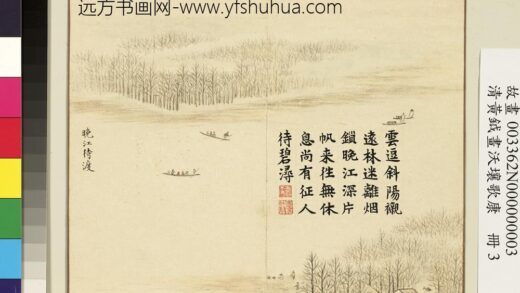 远方书画网-www.yfshuhua.com
故畫 003362N000000003
清黃鉞畫沃壤歌康 冊 3
雲逗斜陽襯
遠林迷離烟
鎖晚江深片
帆来往無休
息尚有征人
待碧潯
晚江待渡